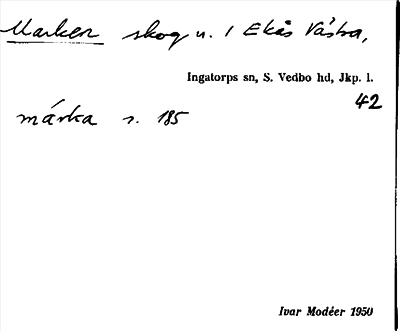 Marken skog n. 1 Ekås Västra,
Ingatorps sn, S. Vedbo hd, Jkp. l.
42
márka s. 185
Ivar Modéer 1950